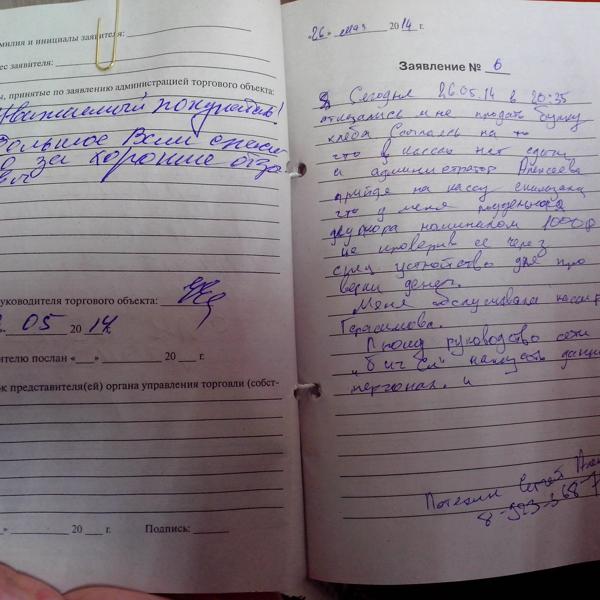 амилия и инициалы заявителя:
ес заявителя:
ы, принятые по заявлению администрацией торгового объекта:
Уважаемый покупатель!
Большое Вам спаси
о за хорошие отзы
вы
уководителя торгового объекта:
05 2014
ителю послан «___» 20 г.
ок представителя(ей) органа управления торговли (собст-
» 20 г. Подпись:
«26» мая 2014 г.
Заявление № 6
Я Сегодня 26.05.14 в 20:35
отказались мне продать булку
хлеба Ссылаясь на то
что в кассы нет сдачи
и администратор Алексеева
прийдя на кассу сказала
что у меня поддельная
купюра номиналом 1000р
не проверив её через
спец устройство для про
верки денег.
Меня обслуживала кассир
Герасимова.
Прошу руководство сети
"Бигбел" наказать данный
персонал. и
Сергей